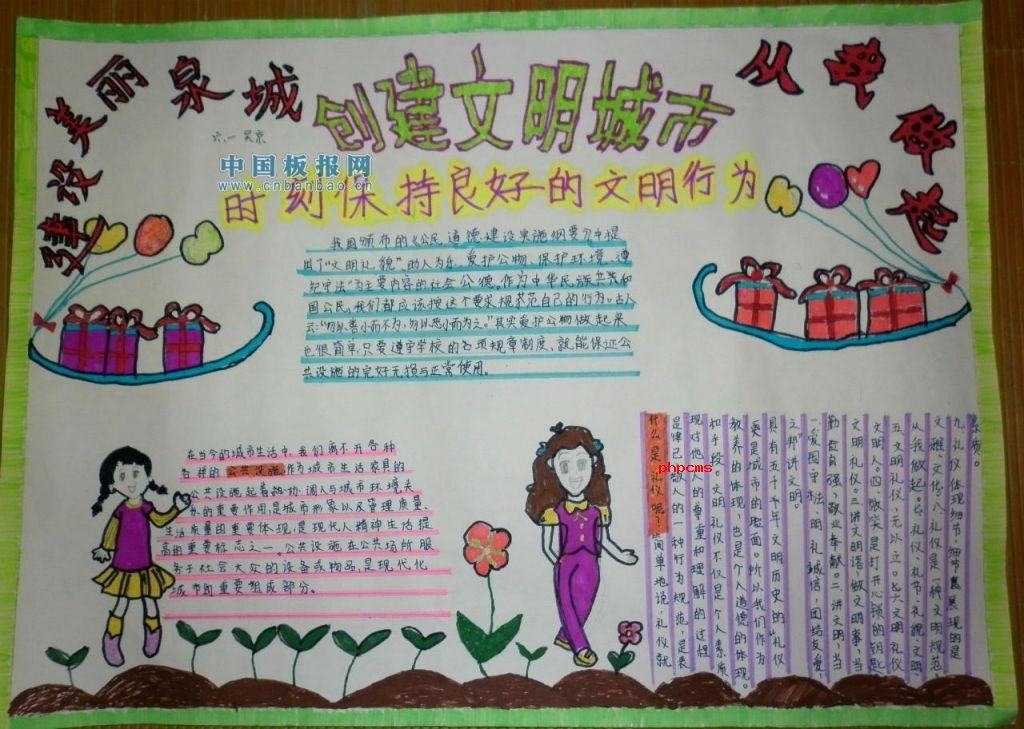 建设美丽泉城
创建文明城市
六.一 吴京
中国板报网
www.cnbanbao.cn
时刻保持良好的文明行为
我国颁布的《公民道德建设实施纲要》中提
出了"文明礼貌"、助人为乐、爱护公物、保护环境、遵
纪守法"为主要内容的社会公德。作为中华民族共和
国公民,我们都应该按这个要求规范自己的行为。古人
云:"勿以善小而不为,勿以恶小而为之。"其实爱护公物做起来
也很简单,只要遵守学校的各项规章制度,就能保证公
共设施的完好无损与正常使用。
在当今的城市生活中,我们离不开各种
各样的公共设施,作为城市生活家具的
公共设施起着协调人与城市环境关
系的重要作用,是城市形象以及管理质量、
生活质量的重要体现,是现代人精神生活提
高的重要标志之一。公共设施在公共场所服
务于社会大众的设备或物品,是现代化
城市的重要组成部分。
什么是礼仪呢?简单地说,礼仪就
是律己、敬人的一种行为规范,是表
现对他人的尊重和理解的过程
和手段。文明礼仪不仅是个人素质、
教养的体现,也是个人道德的体现。
更是城市的脸面。所以我们作为
具有五千年文明历史的"礼仪
之邦",讲文明。
一爱国守法、明礼诚信,团结友爱,
勤俭自强,敬业奉献。二讲文明,当
文明礼仪。三讲文明语做文明事,当
文明人。四微笑是打开心锁的钥匙
五文明礼仪,无以立。六文明礼仪
从我做起。七礼仪礼节,礼貌文明
文雅、文化。八礼仪是一种文明规范,
九礼仪体现细节,细节展现的是
素质。
phpcms